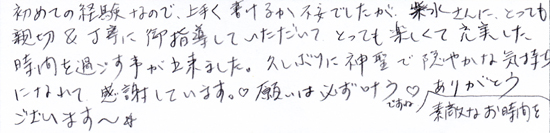 初めての経験なので、上手く書けるか不安でしたが、紫水さんに、とっても
親切&丁寧に御指導していただいて とっても楽しくて充実した
時間を過ごす事が出来ました。久しぶりに神聖で穏やかな気持ち
になれて感謝しています。♡願いは必ず叶う♡ ありがとう
ですね
ございます〜 素敵なお時間を